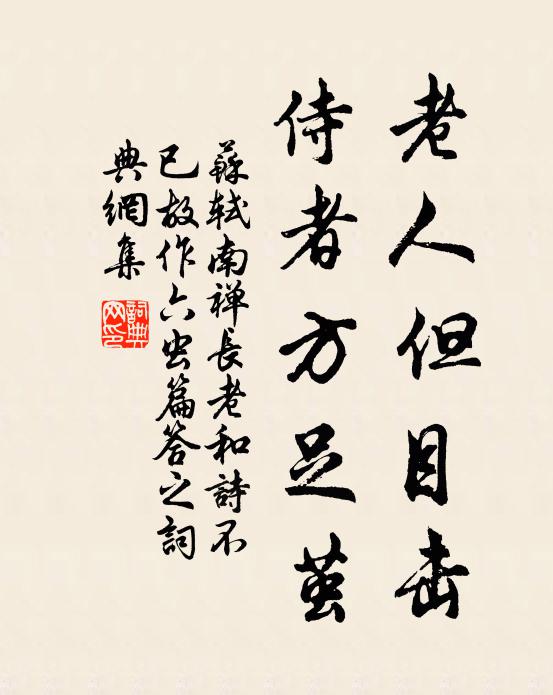 老人但目击
侍者方足茧
苏轼南禅長老和詩不
已故作六虫篇答之词
典網集
詞典网印